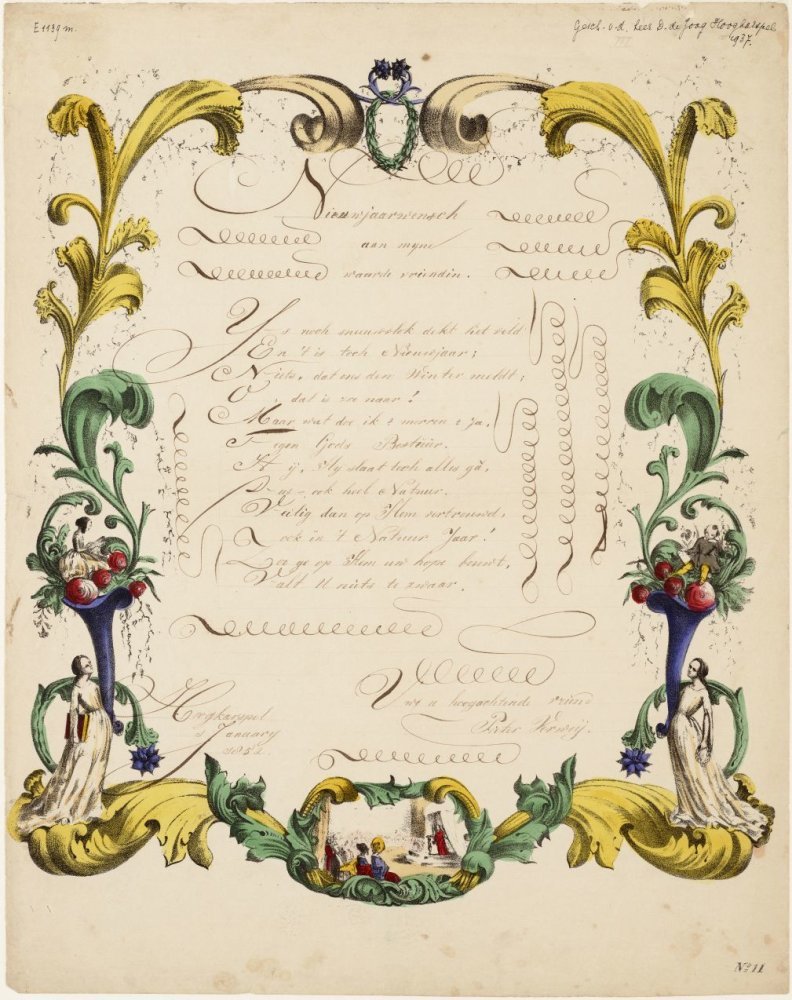 E1139m.
Gesch. v. d. Heer D. de Jong Hoogkarspel
1937.
Nieuwjaarwensch
aan myne
waarde vriendin.
IJs noch sneeuwvlok dekt het veld
En 't is toch Nieuwjaar;
Niets, dat ons den Winter meldt;
O, dat is zoo naar!
Maar wat doe ik? morren? Ja,
Tegen Gods Bestuur.
Hij, Hy slaat toch alles gâ,
Dus ook heel Natuur.
Veilig dan op Hem vertrouwd,
Ook in 't Natuur Jaar!
Zoo ge op Hem uw hope bouwt,
Valt U niets te zwaar.
Hoogkarspel
Uwe u hoogachtende vriend
January
Pieter Verwij.
1852
No. 11